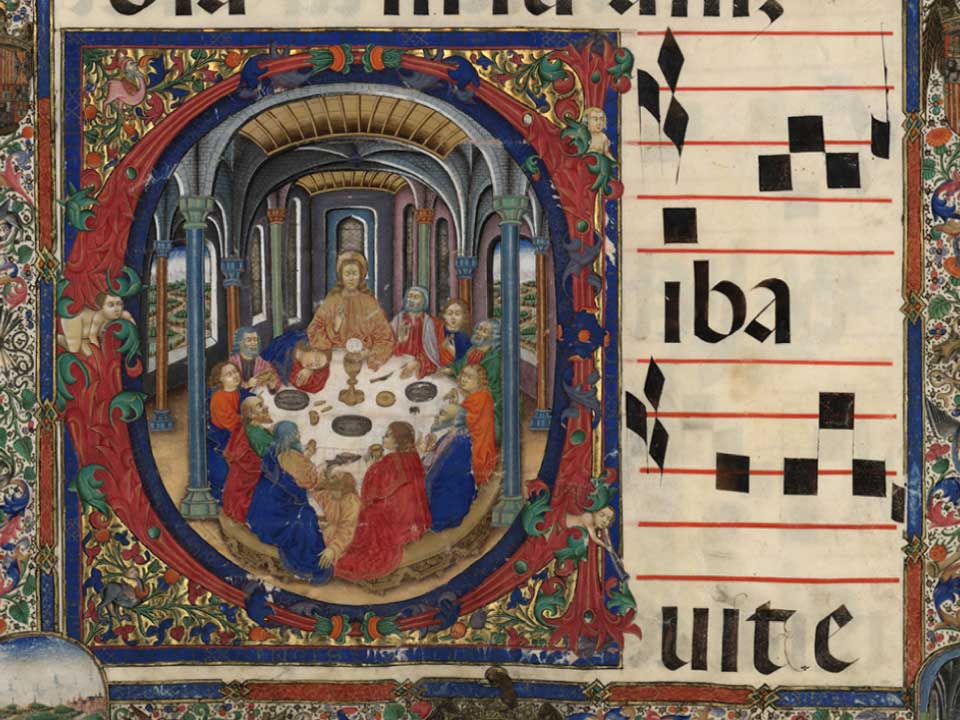 Ciba
uit e